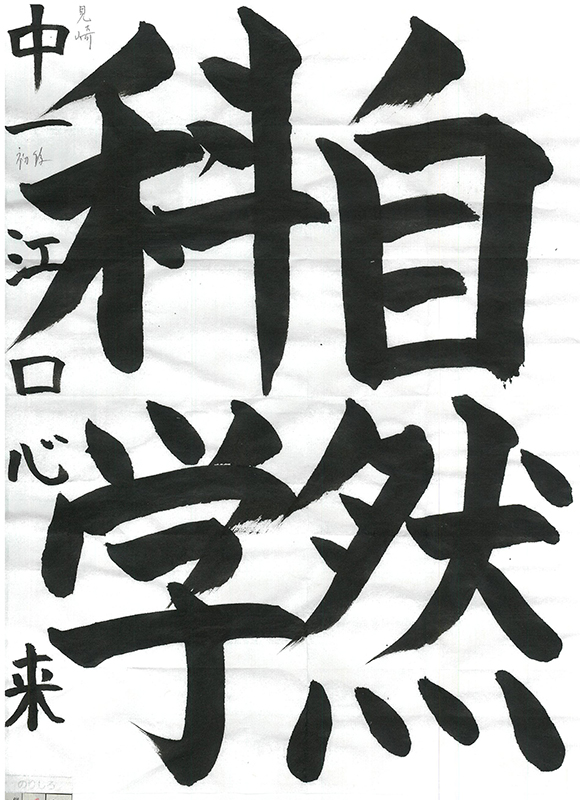 自然
科学
中一 江口心来
見崎
初段
のりしろ